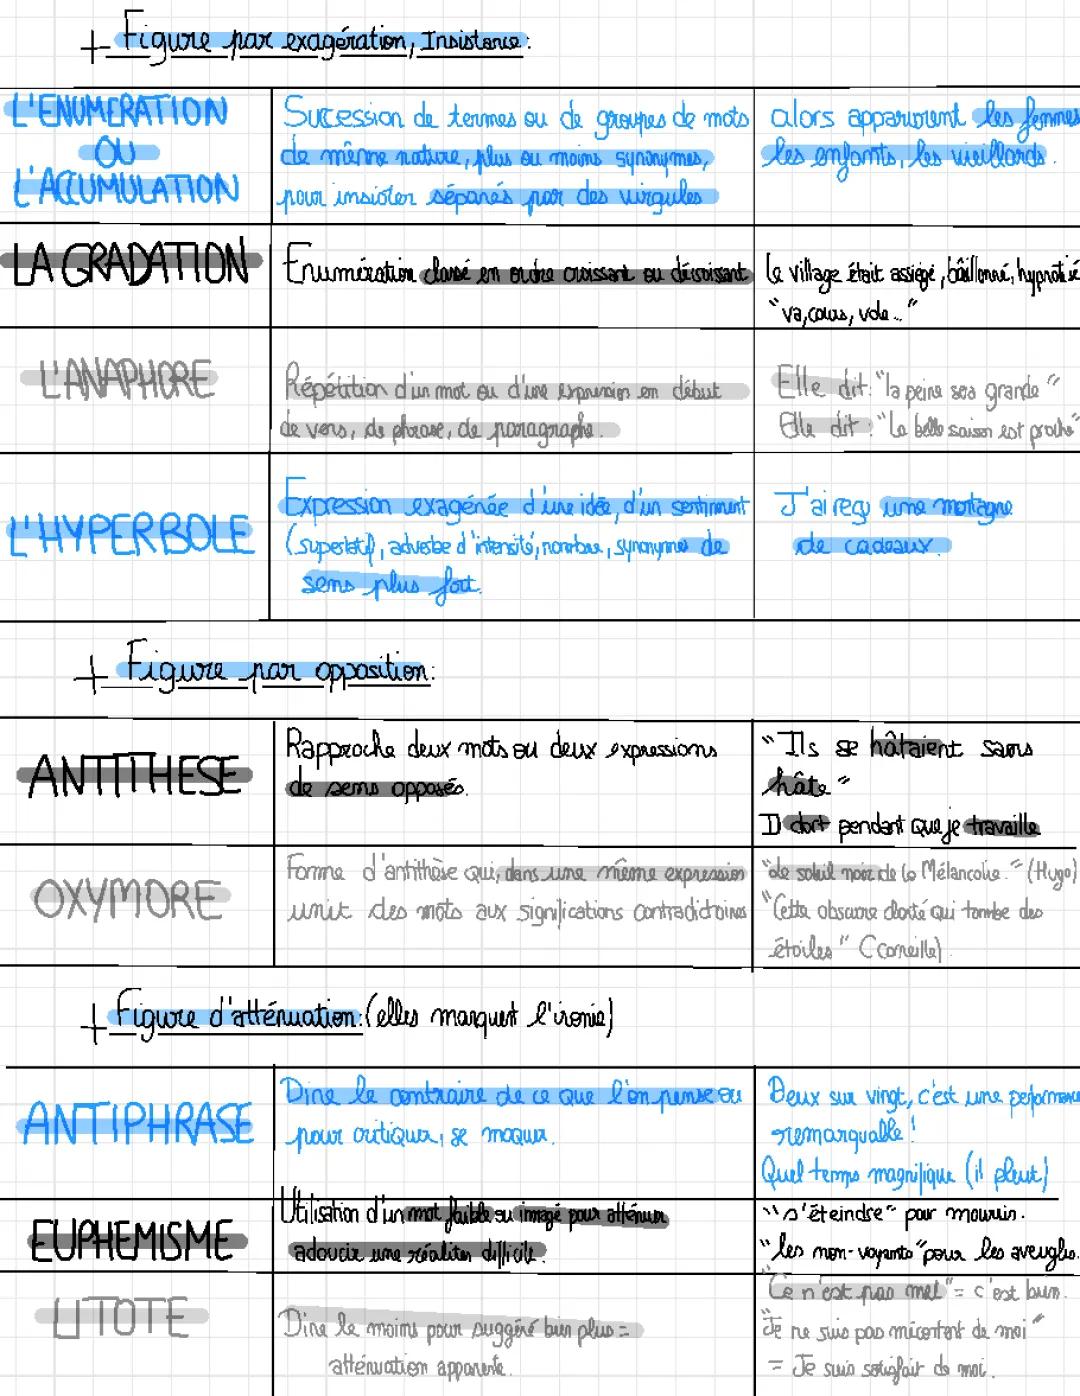 + Figure par exagération, Insistance :
L'ENUMERATION
OU
L'ACCUMULATION
Sucession de termes ou de groupes de mots
de même nature, plus ou moins synonymes,
pour insister séparés par des virgules
alors apparurent les femmes
les enfants, les vieillards.
LA GRADATION
Enumération classé en ordre croissant ou décroissant
Le village était assiégé, bâillonné, hypnotisé
"va, cours, vole..."
L'ANAPHORE
Répétition d'un mot ou d'une expression en début
de vers, de phrase, de paragraphe.
Elle dit : "la peine sera grande"
Elle dit : "La belle saison est proche"
L'HYPERBOLE
Expression exagérée d'une idée, d'un sentiment
(superlatif, adverbe d'intensité, nombre, synonyme de
sens plus fort.
J'ai reçu une motagne
de cadeaux.
+ Figure par opposition :
ANTITHESE
Rapproche deux mots ou deux expressions
de sens opposés.
"Ils se hâtaient sans
hâte"
Il dort pendant que je travaille
OXYMORE
Forme d'antithèse qui, dans une même expression
unit des mots aux significations contradictoires
"de soleil noir de la Mélancolie." (Hugo)
"Cette obscure clarté qui tombe des
étoiles" (Corneille)
+ Figure d'atténuation : (elles marquent l'ironie)
ANTIPHRASE
Dire le contraire de ce que l'on pense ou
pour critiquer, se moquer.
Deux sur vingt, c'est une performance
remarquable !
Quel temps magnifique (il pleut)
EUPHEMISME
Utilisation d'un mot faible ou imagé pour atténuer
adoucir une réalités difficile.
"s'éteindre" pour mourrir.
"les non-voyants" pour les aveugles.
LITOTE
Dire le moins pour suggéré bien plus =
atténuation apparente.
"Ce n'est pas mal" = c'est bien.
"Je ne suis pas mécontent de moi"
= Je suis satisfait de moi.